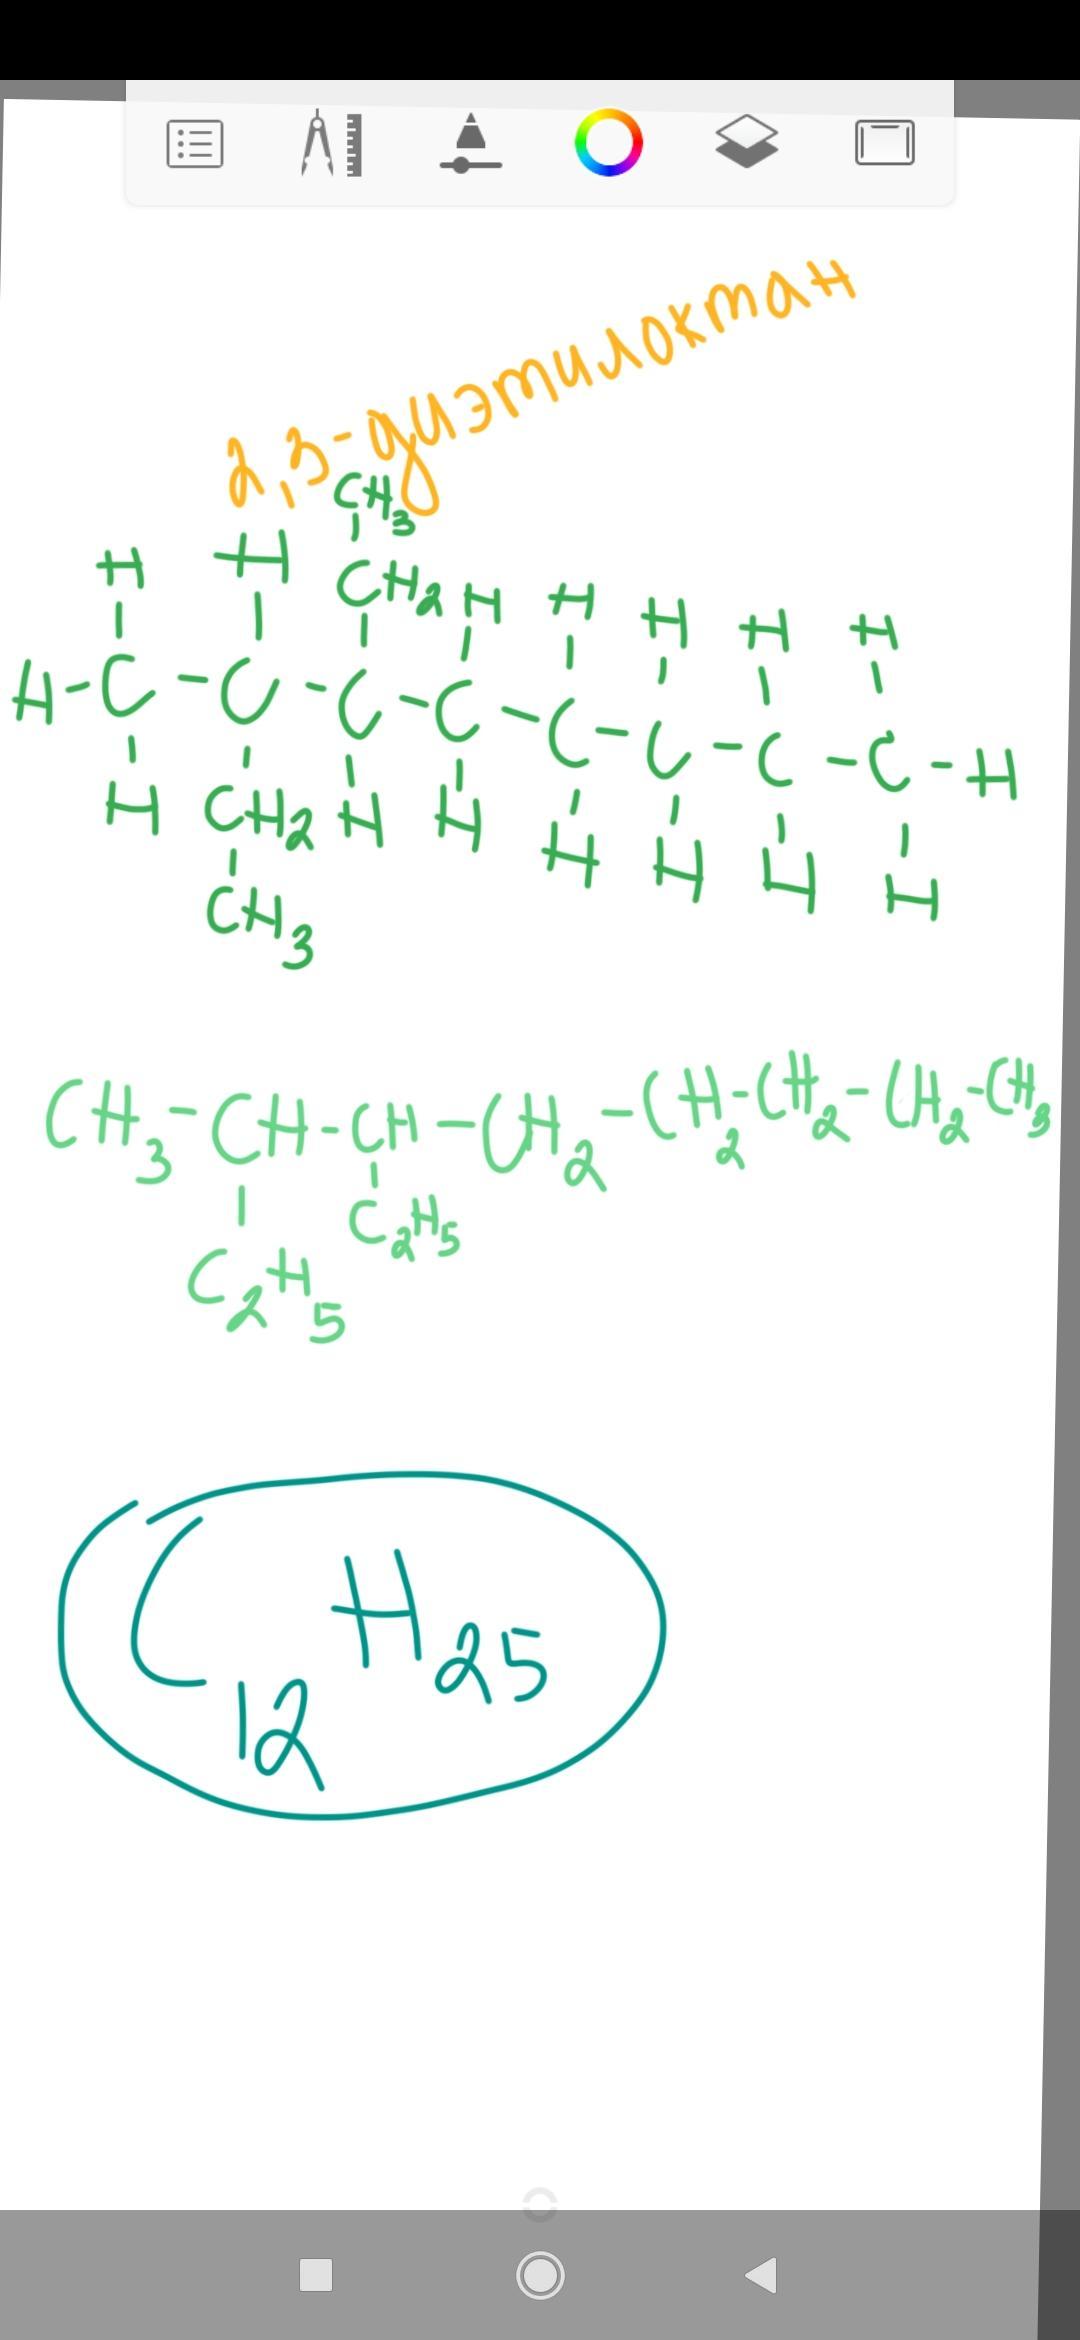 2,3-диэтилоктан
CH3
H H CH2 H H H H H
H-C-C-C-C-C-C-C-C-H
H CH2 H H H H H H
CH3
CH3-CH-CH-CH2-CH2-CH2-CH2-CH3
C2H5
C2H5
C12H25